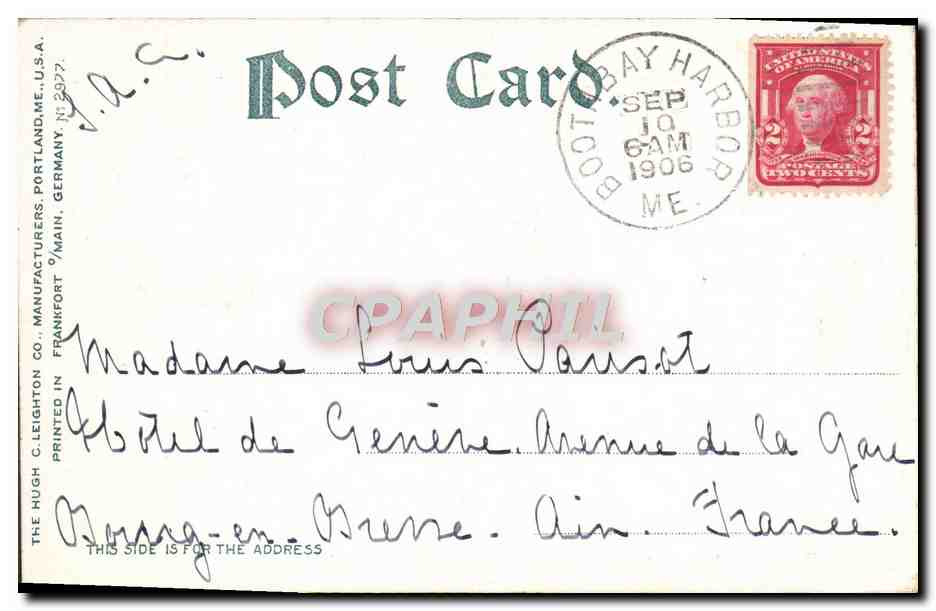 THE HUGH C. LEIGHTON CO., MANUFACTURERS, PORTLAND, ME., U.S.A.
PRINTED IN FRANKFORT o/MAIN, GERMANY. No 2977
Post Card.
BOOTHBAY HARBOR
SEP
10
6 AM
1906
ME.
UNITED STATES
OF AMERICA
2 2
POSTAGE
TWO CENTS
CPAPHIL
Madame Louis
Hôtel de Genève. Avenue de la Gare
Bourg-en-Bresse. Ain. France.
THIS SIDE IS FOR THE ADDRESS